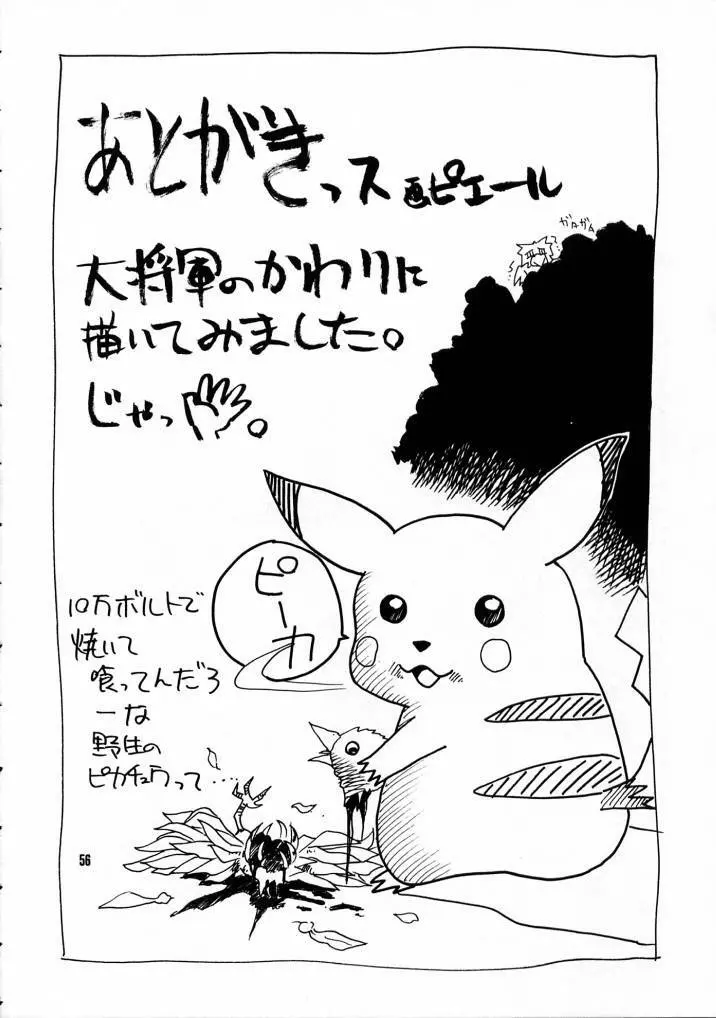 あとがきっス 画ピエール
ガタガタ
大将軍のかわりに
描いてみました。
じゃっ。
ピーカ
10万ボルトで
焼いて
喰ってんだろ
ーな
野生の
ピカチュウって…
56